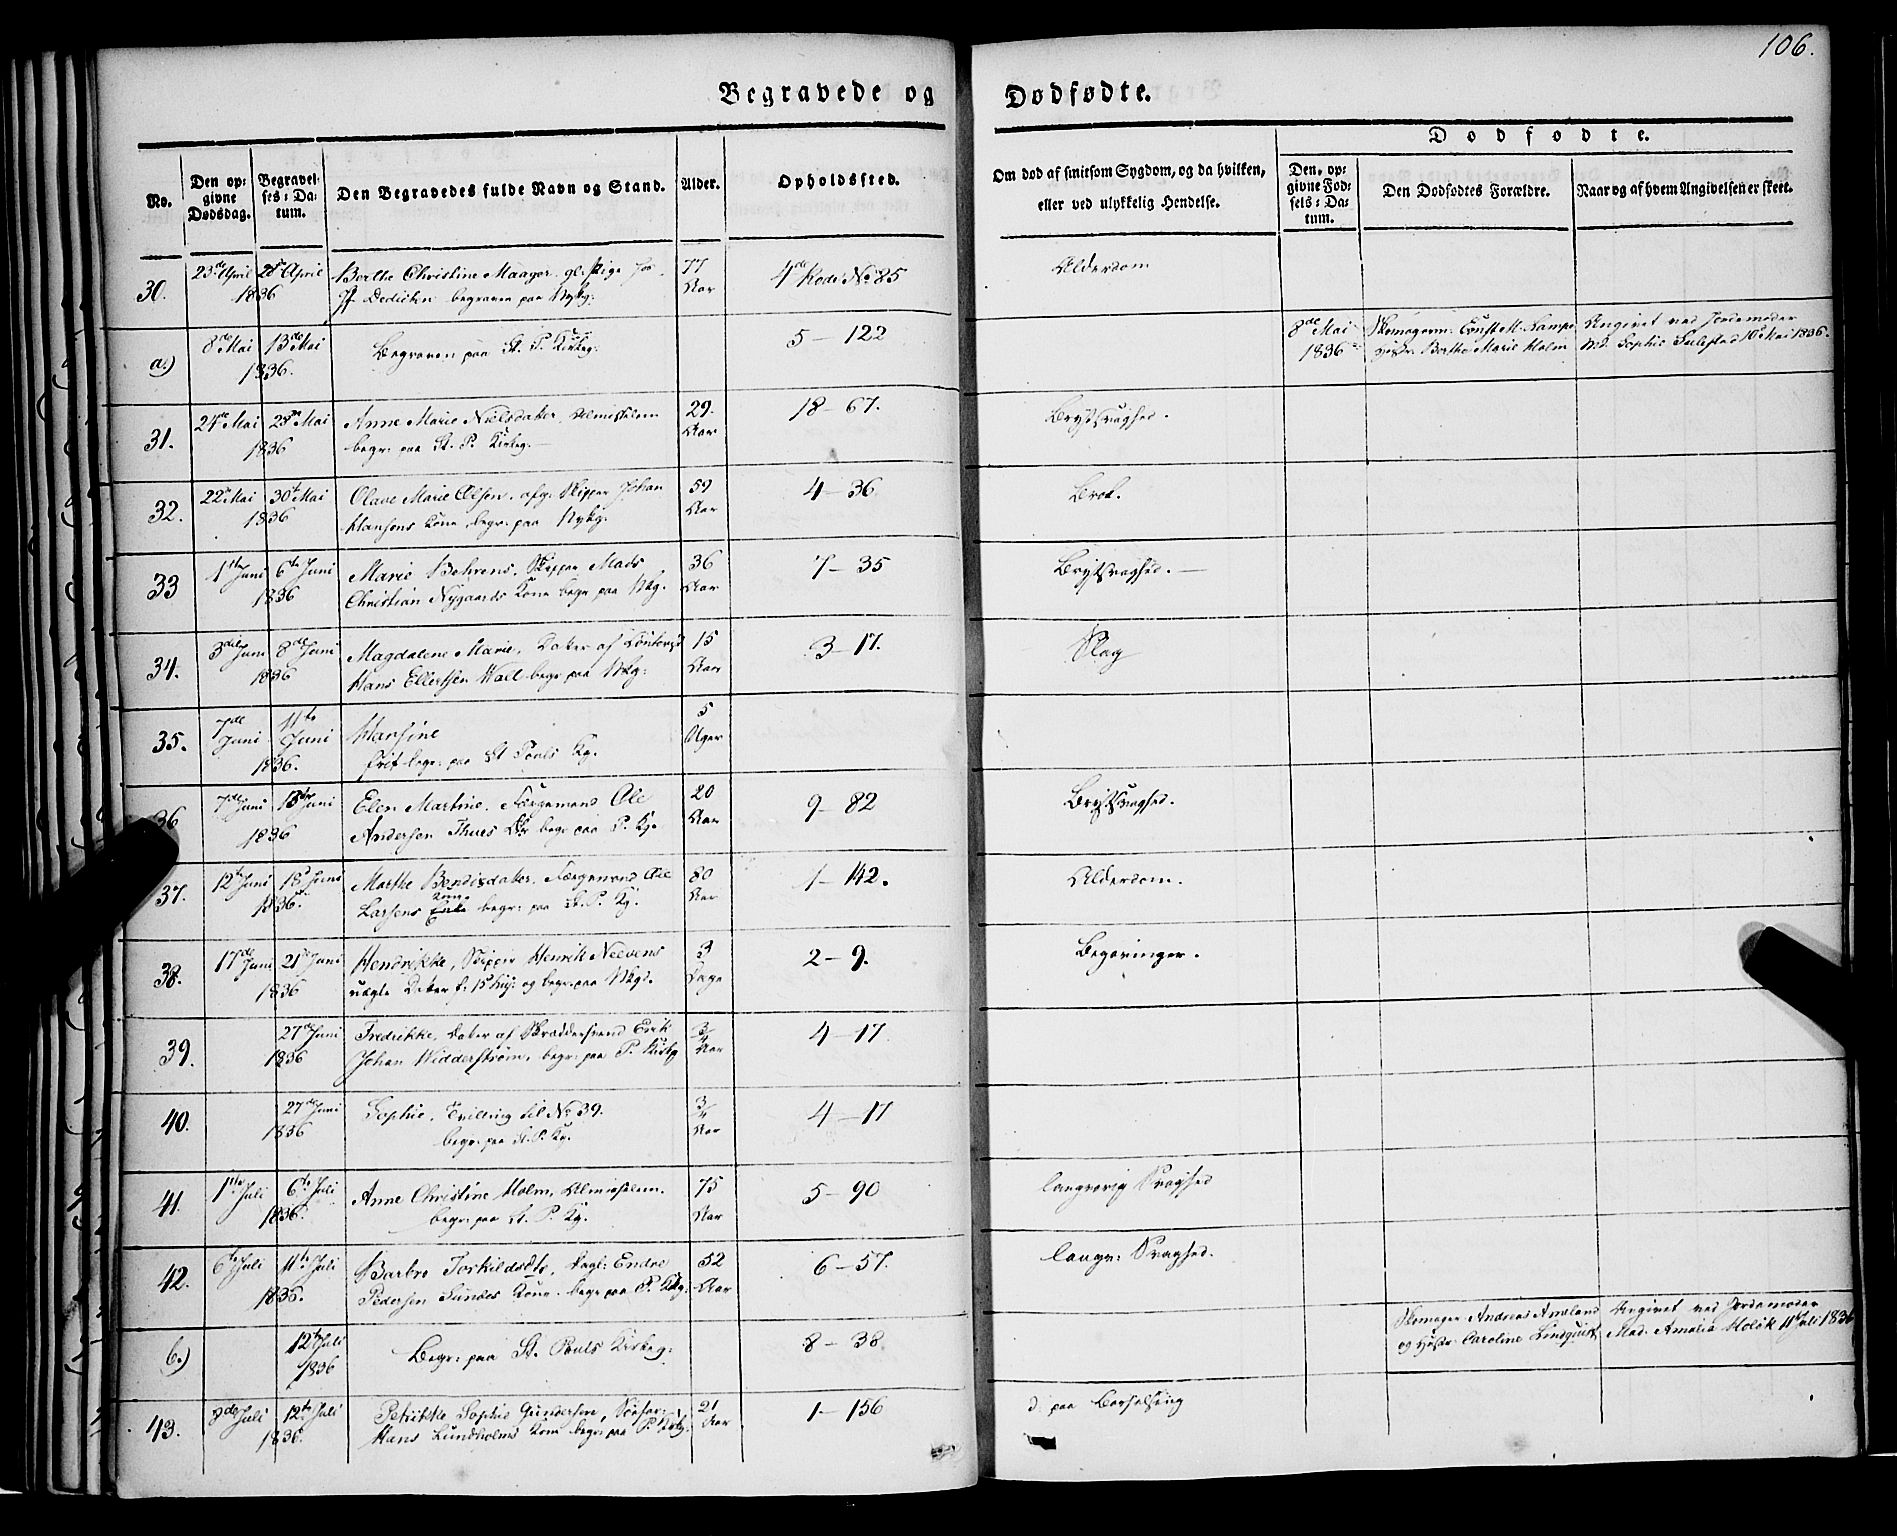 106.
Begravede og Dødfødte.
No.
Den op:
givne
Dødsdag.
Begravel:
ses: Da:
tum.
Den Begravedes fulde Navn og Stand.
Alder.
Opholdssted.
Om død af smitsom Sygdom, og da hvilken,
eller ved ulykkelig Hendelse.
Dødfødte.
Den, op:
givne Fød:
sels: Da:
tum.
Den Dødfødtes Forældre.
Naar og af hvem Angivelsen er skeet.
30. 23de April 28 April Berthe Christine Maager. gl. Pige 77 4de Rode No 85 Alderdom
1836 begraven paa Nykg: Aar
a.) 8de Mai 13de Mai Begraven paa St. P. Kirkeg. 5 – 122 8de Mai Skomagerm. Ernst M. Lampe Angivet ved Jordemoder
1836. 1836 Hustr. Berthe Marie Holm Md. Sophie 10 Mai 1836.
31. 24de Mai 28de Mai Anne Marie Nielsdatter, Almisselem 29. 18 – 67. Brystsvaghed.
1836 begr. paa St. P. Kirkeg. Aar
32. 22de Mai 30te Mai Olave Marie Olsen. afg. Skipper Johan 59 4 – 36 Brok.
1836 Hansens Kone, begr. paa Nykg. Aar
33 1ste Juni 6te Juni Marie Behrens. Skipper Mads 36 7 – 35 Brystsvaghed. —
1836 Christian Nygaards Kone begr paa Nkg. Aar
34. 3die Juni 8de Juni Magdalene Marie, Datter af 15 3 – 17. Slag
1836 Hans Ellertsen Wall begr paa Nkg: Aar
35. 7de Juni 11te Juni Hansine 5
1836. begr: paa St Pouls Kg. Uger
36 7de Juni 13de Juni Elen Martine. Færgemand Ole 20 9 – 82 Brystsvaghed.
1836 Andersen Thues Dtr begr paa P. Kg. Aar
37. 12te Juni 18de Juni Marthe Bendisdatter. Færgemand Ole 80 1 – 142. Alderdom.
1836. Larsens Kone begr: paa St. P. Kg. Aar
38. 17de Juni 21de Juni Hendrikke, Skipper Henrik Neevens 3 2 – 9. Begavninger.
1836 uægte Datter f. 15 huj: og begr. paa Nkgd. Dage
39. 27de Juni Fredrikke, Datter af Skræddersvend Erik 3/4 4 – 17.
1836 Johan Widderstrøm, begr: paa P. Kirkg Aar
40. 27de Juni Sophie, Tvilling til No 39. 3/4 4 – 17
1836 begr: paa St. P. Kg. Aar
41. 1ste Juli 6te Juli Anne Christine Holm, Almisselem. 75 5 – 90 langvarig Svaghed
1836. begr: paa St. P. Kg. Aar
42. 6te Juli 11te Juli Barbro Torkildsdtr, Dagl: Endre 52 6 – 57. langv: Svaghed.
1836. Pedersen Sundes Kone. begr paa P. Kkg: Aar
b.) 12te Juli Begr: paa St. Pouls Kirkeg: 8 – 38. Skomager Andreas Angivet ved Jordemoder
1836 og Hustr. Caroline Lindquist Mad. Amalia Holck 11te Juli 1836
43. 8de Juli 12te Juli Petrikke Sophie Gundersen, 21 1 – 156 d. paa Barselseng
1836. Hans Lundholms Kone begr: paa P. Kirkg: Aar